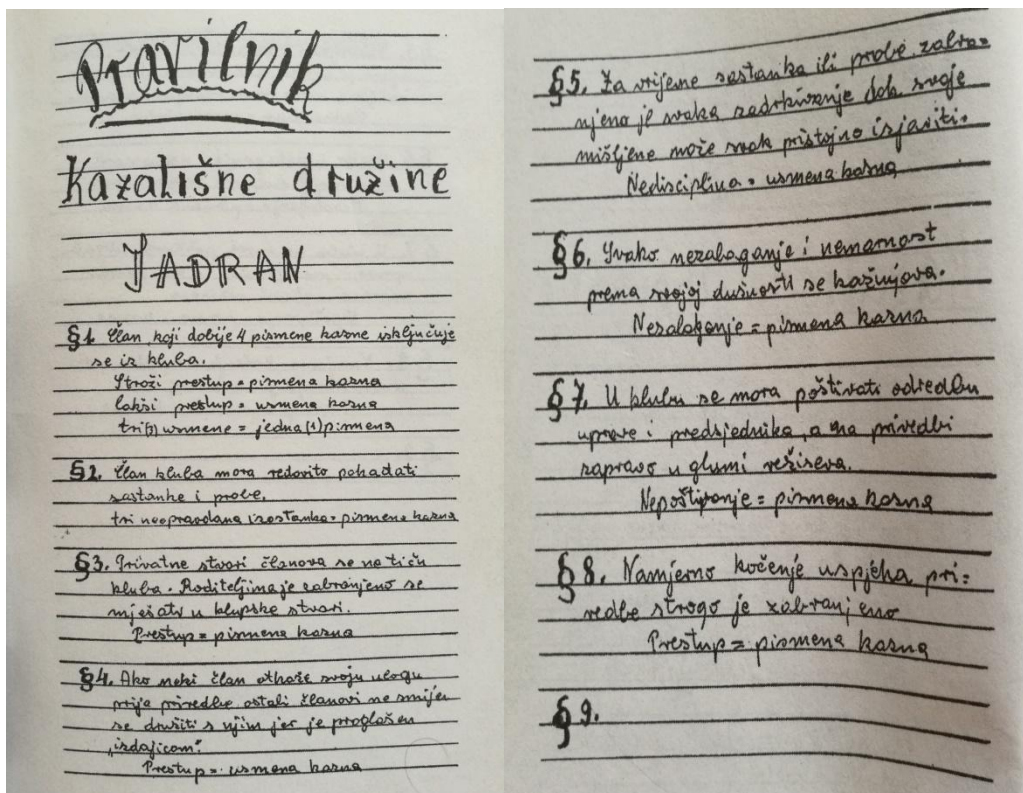 Pravilnik
Kazališne družine
JADRAN
§1. Član koji dobije 4 pismene kazne isključuje
se iz kluba.
Stroži prestup = pismena kazna
lakši prestup = usmena kazna
tri(3) usmene = jedna (1) pismena
§2. Član kluba mora redovito pohađati
sastanke i probe.
tri neopravdana izostanka = pismena kazna
§3. Privatne stvari članova se ne tiču
kluba. Roditeljima je zabranjeno se
mješati u klupske stvari.
Prestup = pismena kazna
§4. Ako neki član otkaže svoju ulogu
prije priredbe ostali članovi ne smiju
se družiti s njim jer je proglašen
„izdajicom".
Prestup = usmena kazna
§5. Za vrijeme sastanka ili probe zabra=
njeno je svako zadrkivanje dok svoje
mišljene može svak pristojno izjaviti.
Nedisciplina = usmena kazna
§6. Svako nezalaganje i nemarnost
prema svojoj dušnosti se kažnjava.
Nezalaganje = pismena kazna
§7. U klubu se mora poštivati odredbu
uprave i predsjednika, a na privedbi
zapravo u glumi režisera.
Nepoštivanje = pismena kazna
§8. Namjerno kočenje uspjeha pri=
redbe strogo je zabranjeno
Prestup = pismena kazna
§9.